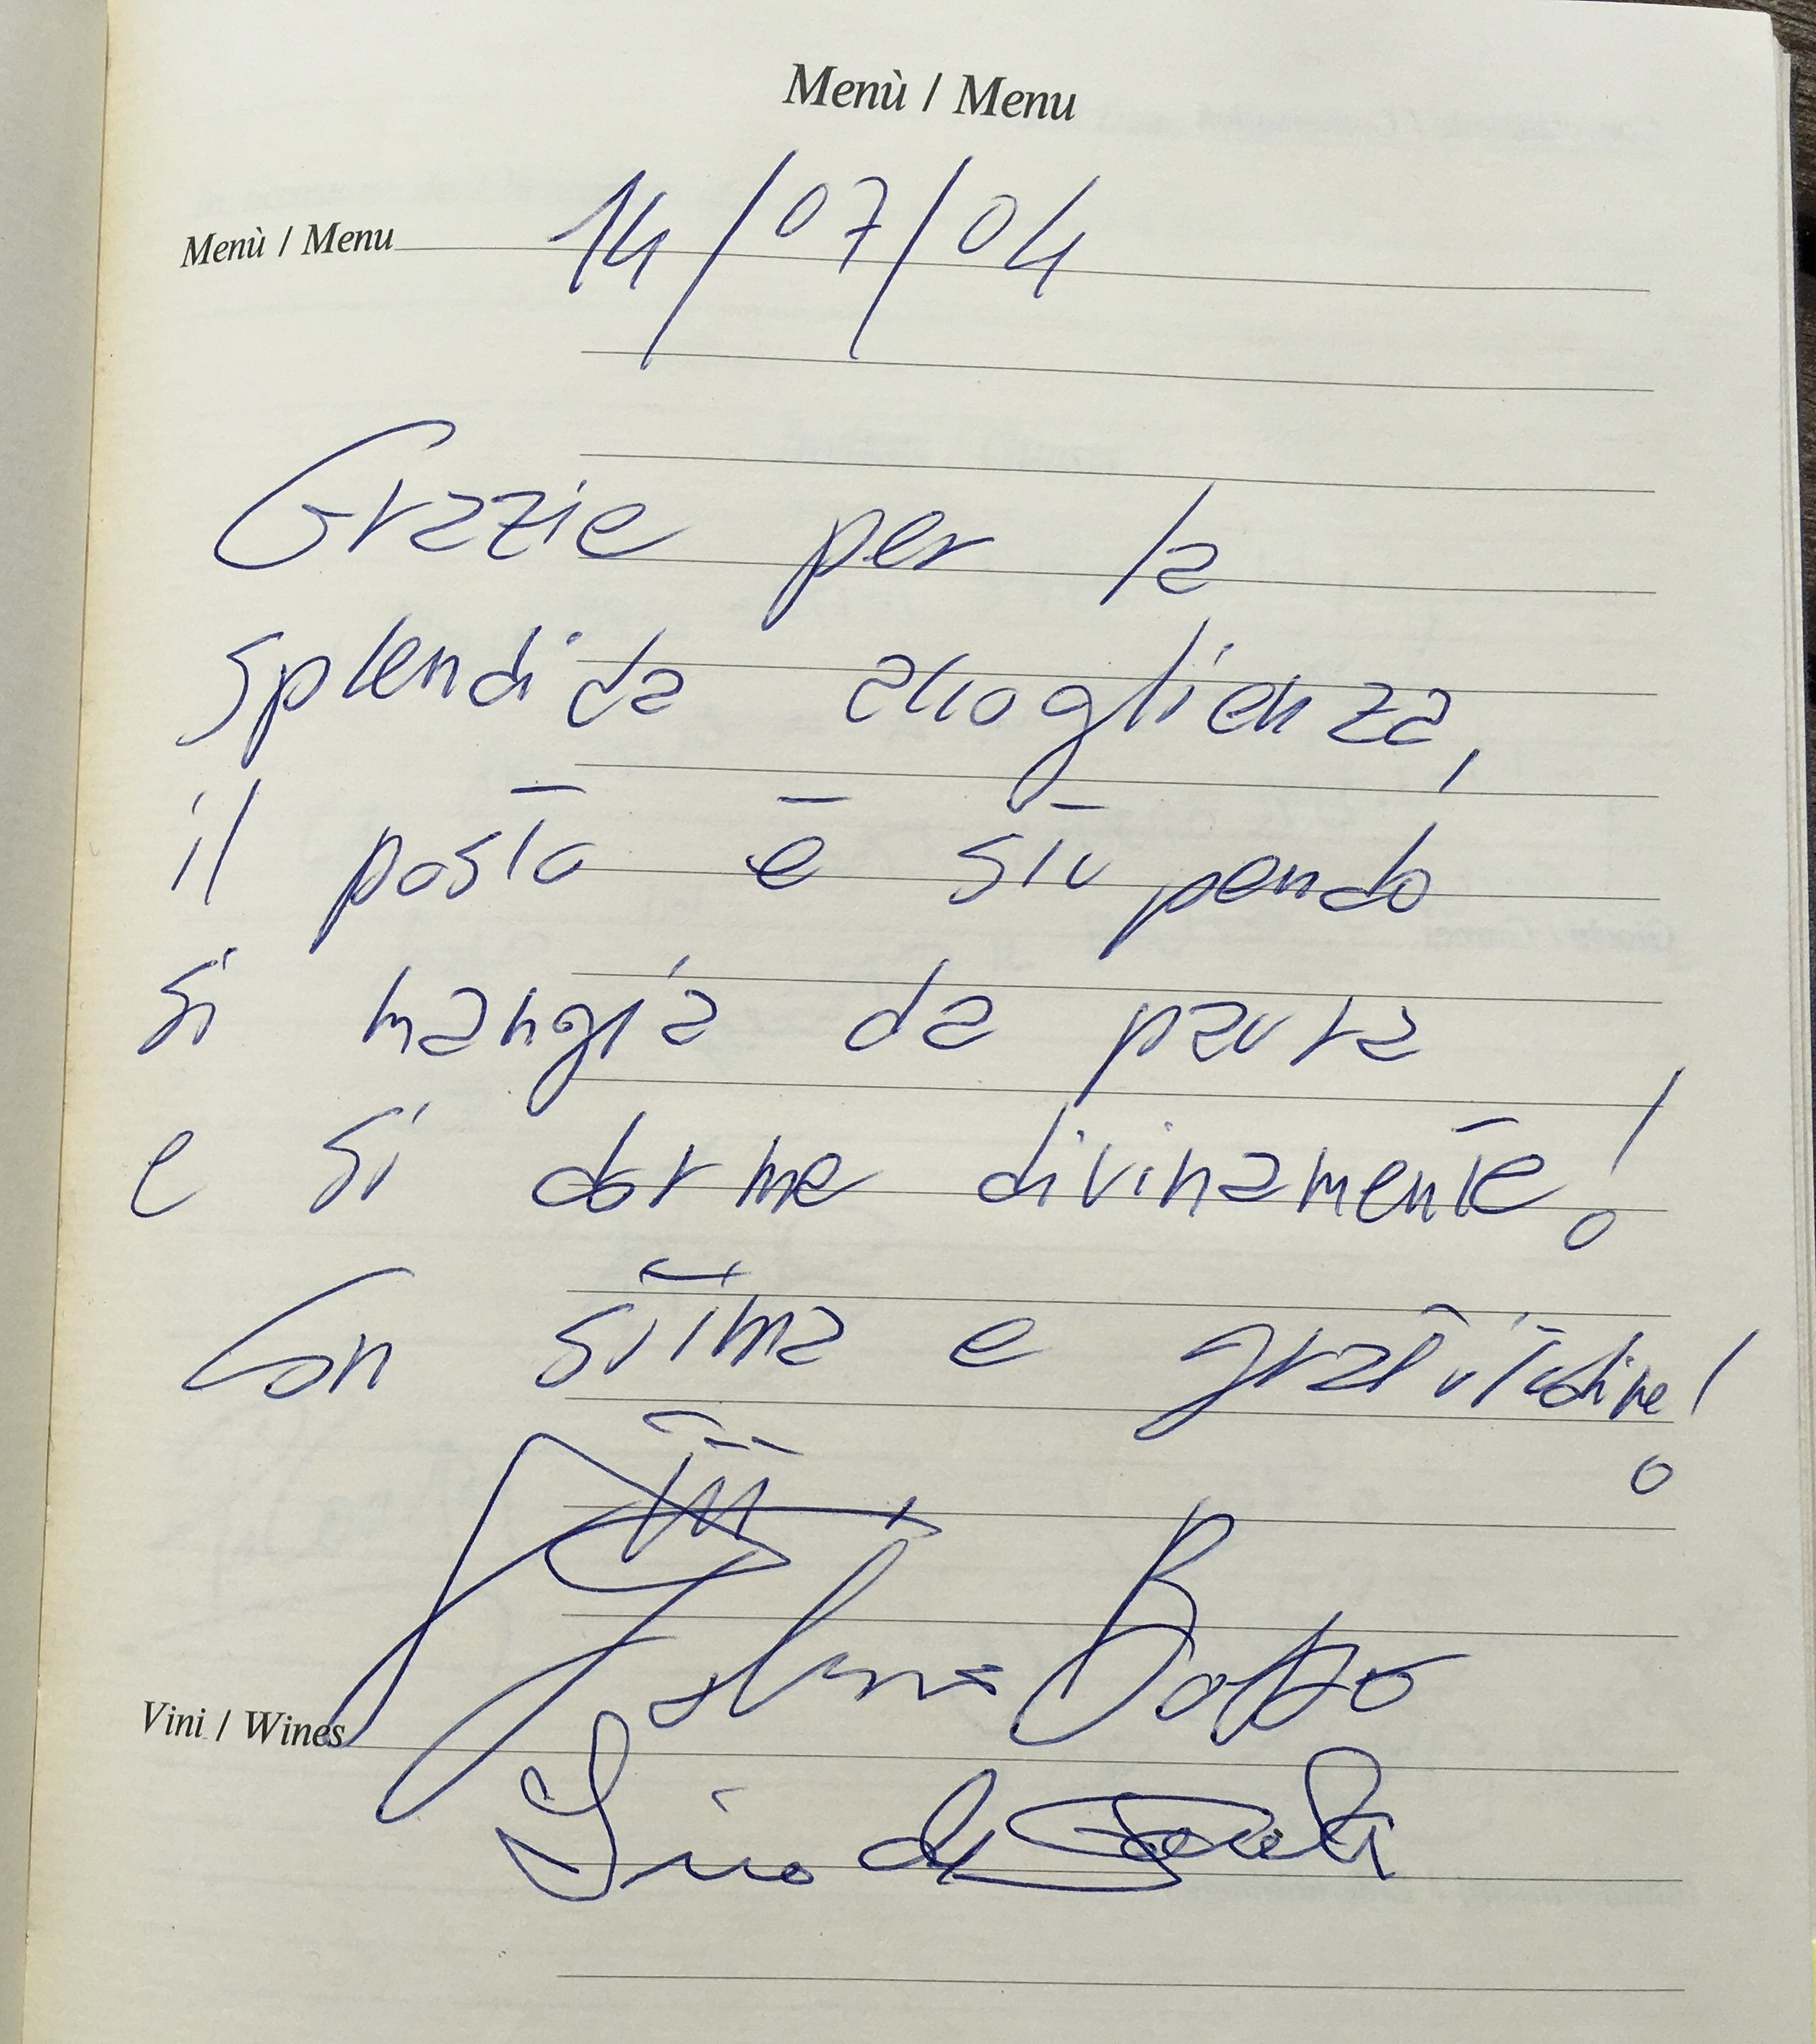 Menù / Menu
Menù / Menu 14/07/04
Grazie per la
splendida accoglienza,
il posto è stupendo
si mangia da paura
e si dorme divinamente!
Con stima e gratitudine!
Vini / Wines